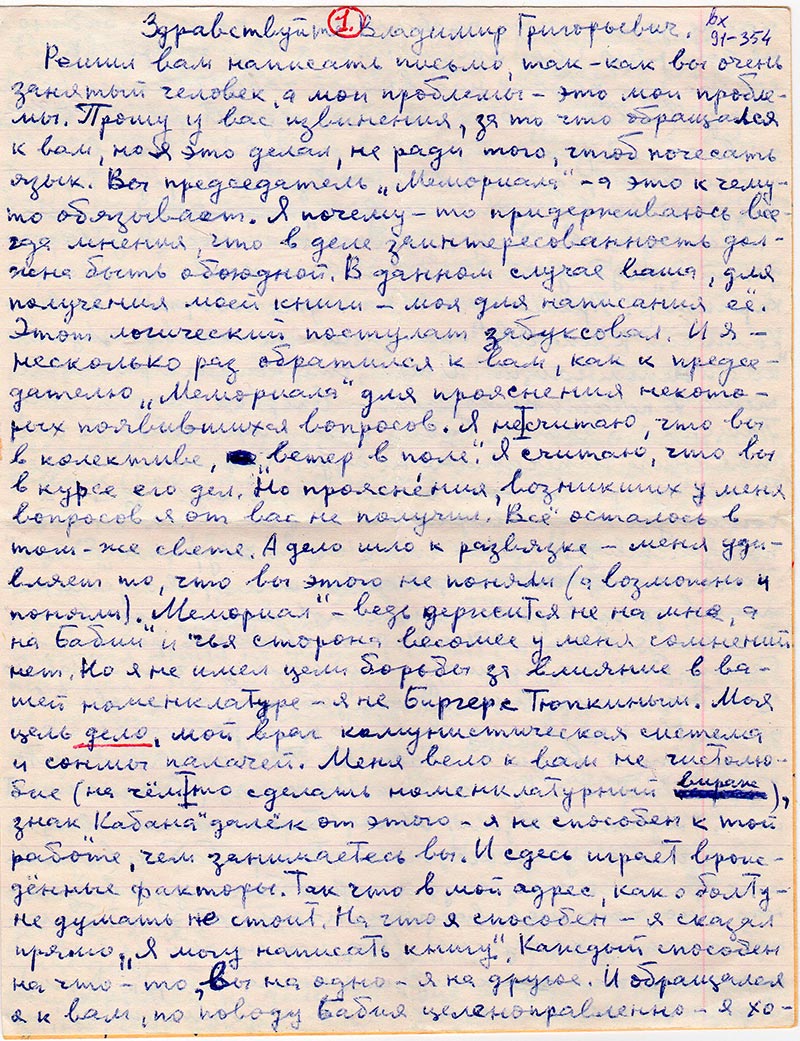 Здравствуйте 1. Владимир Григорьевич. вх
91-354
Решил вам написать письмо, так-как вы очень
занятый человек, а мои проблемы – это мои пробле-
мы. Прошу у вас извинения, за то что обращался
к вам, но я это делал, не ради того, чтоб почесать
язык. Вы председатель „Мемориала“ – а это к чему-
то обязывает. Я почему-то придерживаюсь все-
гда мнения, что в деле заинтересованность дол-
жна быть обоюдной. В данном случае ваша, для
получения моей книги – моя для написания её.
Этот логический постулат забуксовал. И я –
несколько раз обратился к вам, как к предсе-
дателю „Мемориала“ для прояснения некото-
рых появившихся вопросов. Я не считаю, что вы
в колективе, „ветер в поле“. Я считаю, что вы
в курсе его дел. Но прояснения, возникших у меня
вопросов я от вас не получил. Всё осталось в
том-же свете. А дело шло к развязке – меня уди-
вляет то, что вы этого не поняли (а возможно и
поняли). „Мемориал“ – ведь держится не на мне, а
на „Бабии“ и чья сторона весомее у меня сомнений
нет. Но я не имел цели борьбы за влияние в ва-
шей номенклатуре – я не Биргер с Тюпкиным. Моя
цель дело, мой враг комунистическая система
и сонмы палачей. Меня вело к вам не чистолю-
бие (на чём то сделать номенклатурный вираж),
знак „Кабана“ далёк от этого – я не способен к той
работе, чем занимаетесь вы. И сдесь играет врож-
дённые факторы. Так что в мой адрес, как о болту-
не думать не стоит. На что я способен – я сказал
прямо, „Я могу написать книгу“. Каждый способен
на что-то, вы на одно – я на другое. И обращался
я к вам, по поводу Бабия целеноправленно – я хо-